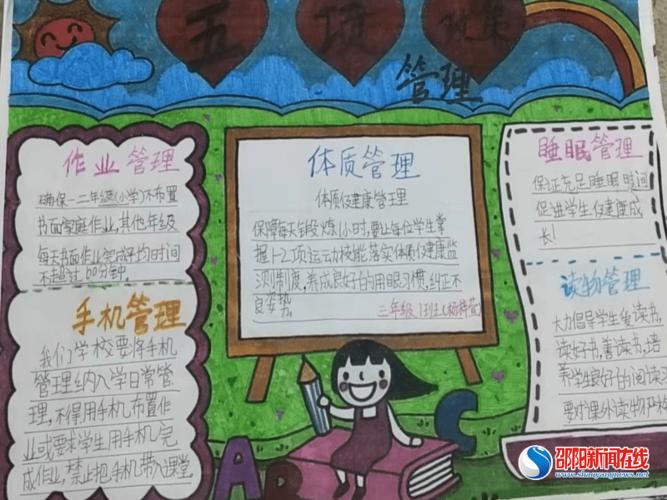 五项政策
管理
作业管理
确保一二年级(小学)不布置
书面家庭作业,其他年级
每天书面作业完成平均时间
不超过60分钟。
手机管理
我们学校要将手机
管理纳入学日常管
理,不得用手机布置作
业或要求学生用手机完
成作业,禁止把手机带入课堂
体质管理
体质健康管理
保障每天锻炼1小时,要让每位学生掌
握1-2项运动技能落实体质健康监
测制度,养成良好的用眼习惯,纠正不
良姿势。
三年级1班
睡眠管理
保证充足睡眠时间
促进学生健康成
长!
读物管理
大力倡导学生爱读书,
读好书,善读书,培
养学生良好的阅读习
要对课外读物严格
A B C
邵阳新闻在线
www.shaoyangnews.net